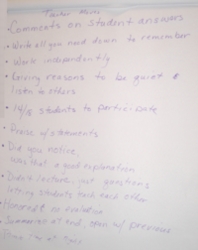 Teacher Moves
• Comments on student answers
• Write all you need down to remember
• Work independently
• Giving reasons to be quiet &
listen to others
• 14/18 students to participate
• Praise w/ statements
• Did you notice,
was that a good explanation
• Didn't lecture, just questions
letting students teach each other
• no evaluation
• Summarize at end, open w/ previous